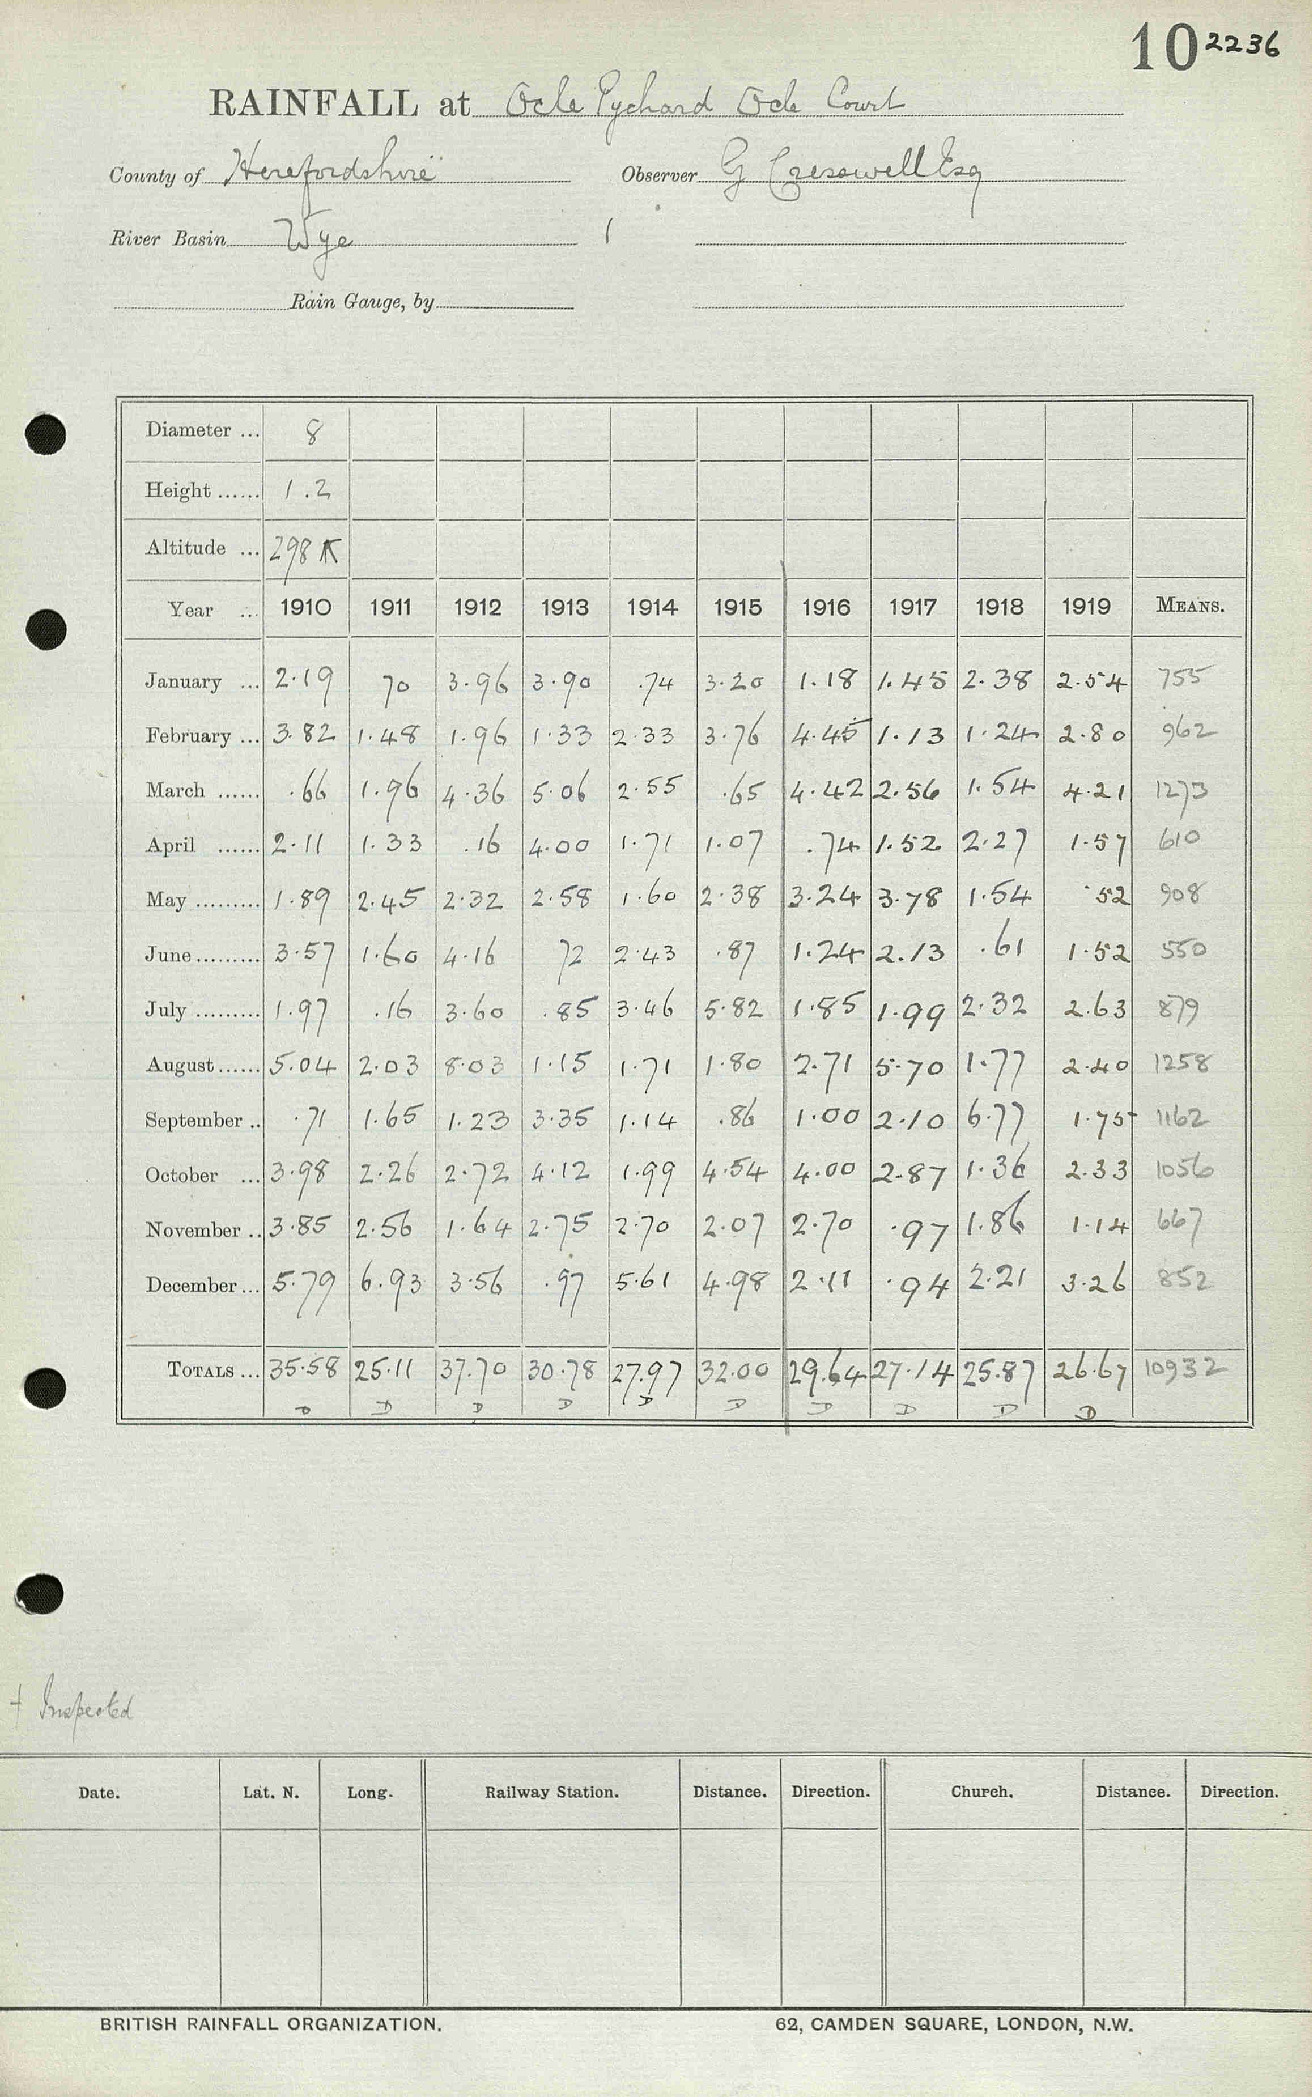 10 2236
RAINFALL at Ocle Pychard Ocle Court
County of Herefordshire Observer G Cresswell Esq
River Basin Wye 1
Rain Gauge, by
Diameter ... 8
Height ...... 1.2
Altitude ... 298
Year ... 1910 1911 1912 1913 1914 1915 1916 1917 1918 1919 MEANS.
January ... 2.19 70 3.96 3.90 .74 3.20 1.18 1.45 2.38 2.54 755
February ... 3.82 1.48 1.96 1.33 2.33 3.76 4.45 1.13 1.24 2.80 962
March ...... .66 1.96 4.36 5.06 2.55 .65 4.42 2.56 1.54 4.21 1273
April ...... 2.11 1.33 .16 4.00 1.71 1.07 .74 1.52 2.27 1.57 610
May ......... 1.89 2.45 2.32 2.58 1.60 2.38 3.24 3.78 1.54 .52 908
June ......... 3.57 1.60 4.16 72 2.43 .87 1.24 2.13 .61 1.52 550
July ......... 1.97 .16 3.60 .85 3.46 5.82 1.85 1.99 2.32 2.63 879
August ...... 5.04 2.03 8.03 1.15 1.71 1.80 2.71 5.70 1.77 2.40 1258
September .. .71 1.65 1.23 3.35 1.14 .86 1.00 2.10 6.77 1.75 1162
October ... 3.98 2.26 2.72 4.12 1.99 4.54 4.00 2.87 1.36 2.33 1056
November .. 3.85 2.56 1.64 2.75 2.70 2.07 2.70 .97 1.86 1.14 667
December ... 5.79 6.93 3.56 .97 5.61 4.98 2.11 .94 2.21 3.26 852
TOTALS ... 35.58 25.11 37.70 30.78 27.97 32.00 29.64 27.14 25.87 26.67 10932
D D D D D D D D D D
† Inspected
Date. Lat. N. Long. Railway Station. Distance. Direction. Church. Distance. Direction.
BRITISH RAINFALL ORGANIZATION. 62, CAMDEN SQUARE, LONDON, N.W.